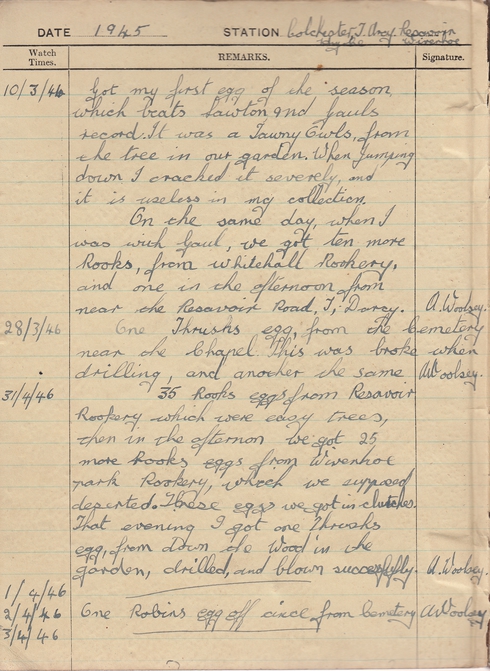 DATE 1945 STATION Colchester, T. Darcy Resavoir
Wivenhoe
Watch Times. REMARKS. Signature.
10/3/46 Got my first egg of the season
which beats Lawton and Gauls
record. It was a Tawny Owls, from
the tree in our garden. When jumping
down I cracked it severely, and
it is useless in my collection.
On the same day, when I
was with Gaul, we got ten more
Rooks, from Whitehall Rookery,
and one in the afternoon from
near the Resavoir Road, T, Darcy. A. Woolsey.
28/3/46 One Thrushs egg, from the Cemetery
near the Chapel This was broke when
drilling, and another the same AWoolsey.
31/4/46 35 Rooks eggs from Resavoir
Rookery which were easy trees,
then in the afternon we got 25
more Rooks eggs from Wivenhoe
park Rookery, which we supposed
deserted. These eggs we got in clutches.
That evening I got one Thrushs
egg, from down the Wood in the
garden, drilled, and blown succesfully. A. Woolsey.
1/4/46
2/4/46 One Robins egg off circe from Cemetery AWoolsey
3/4/46